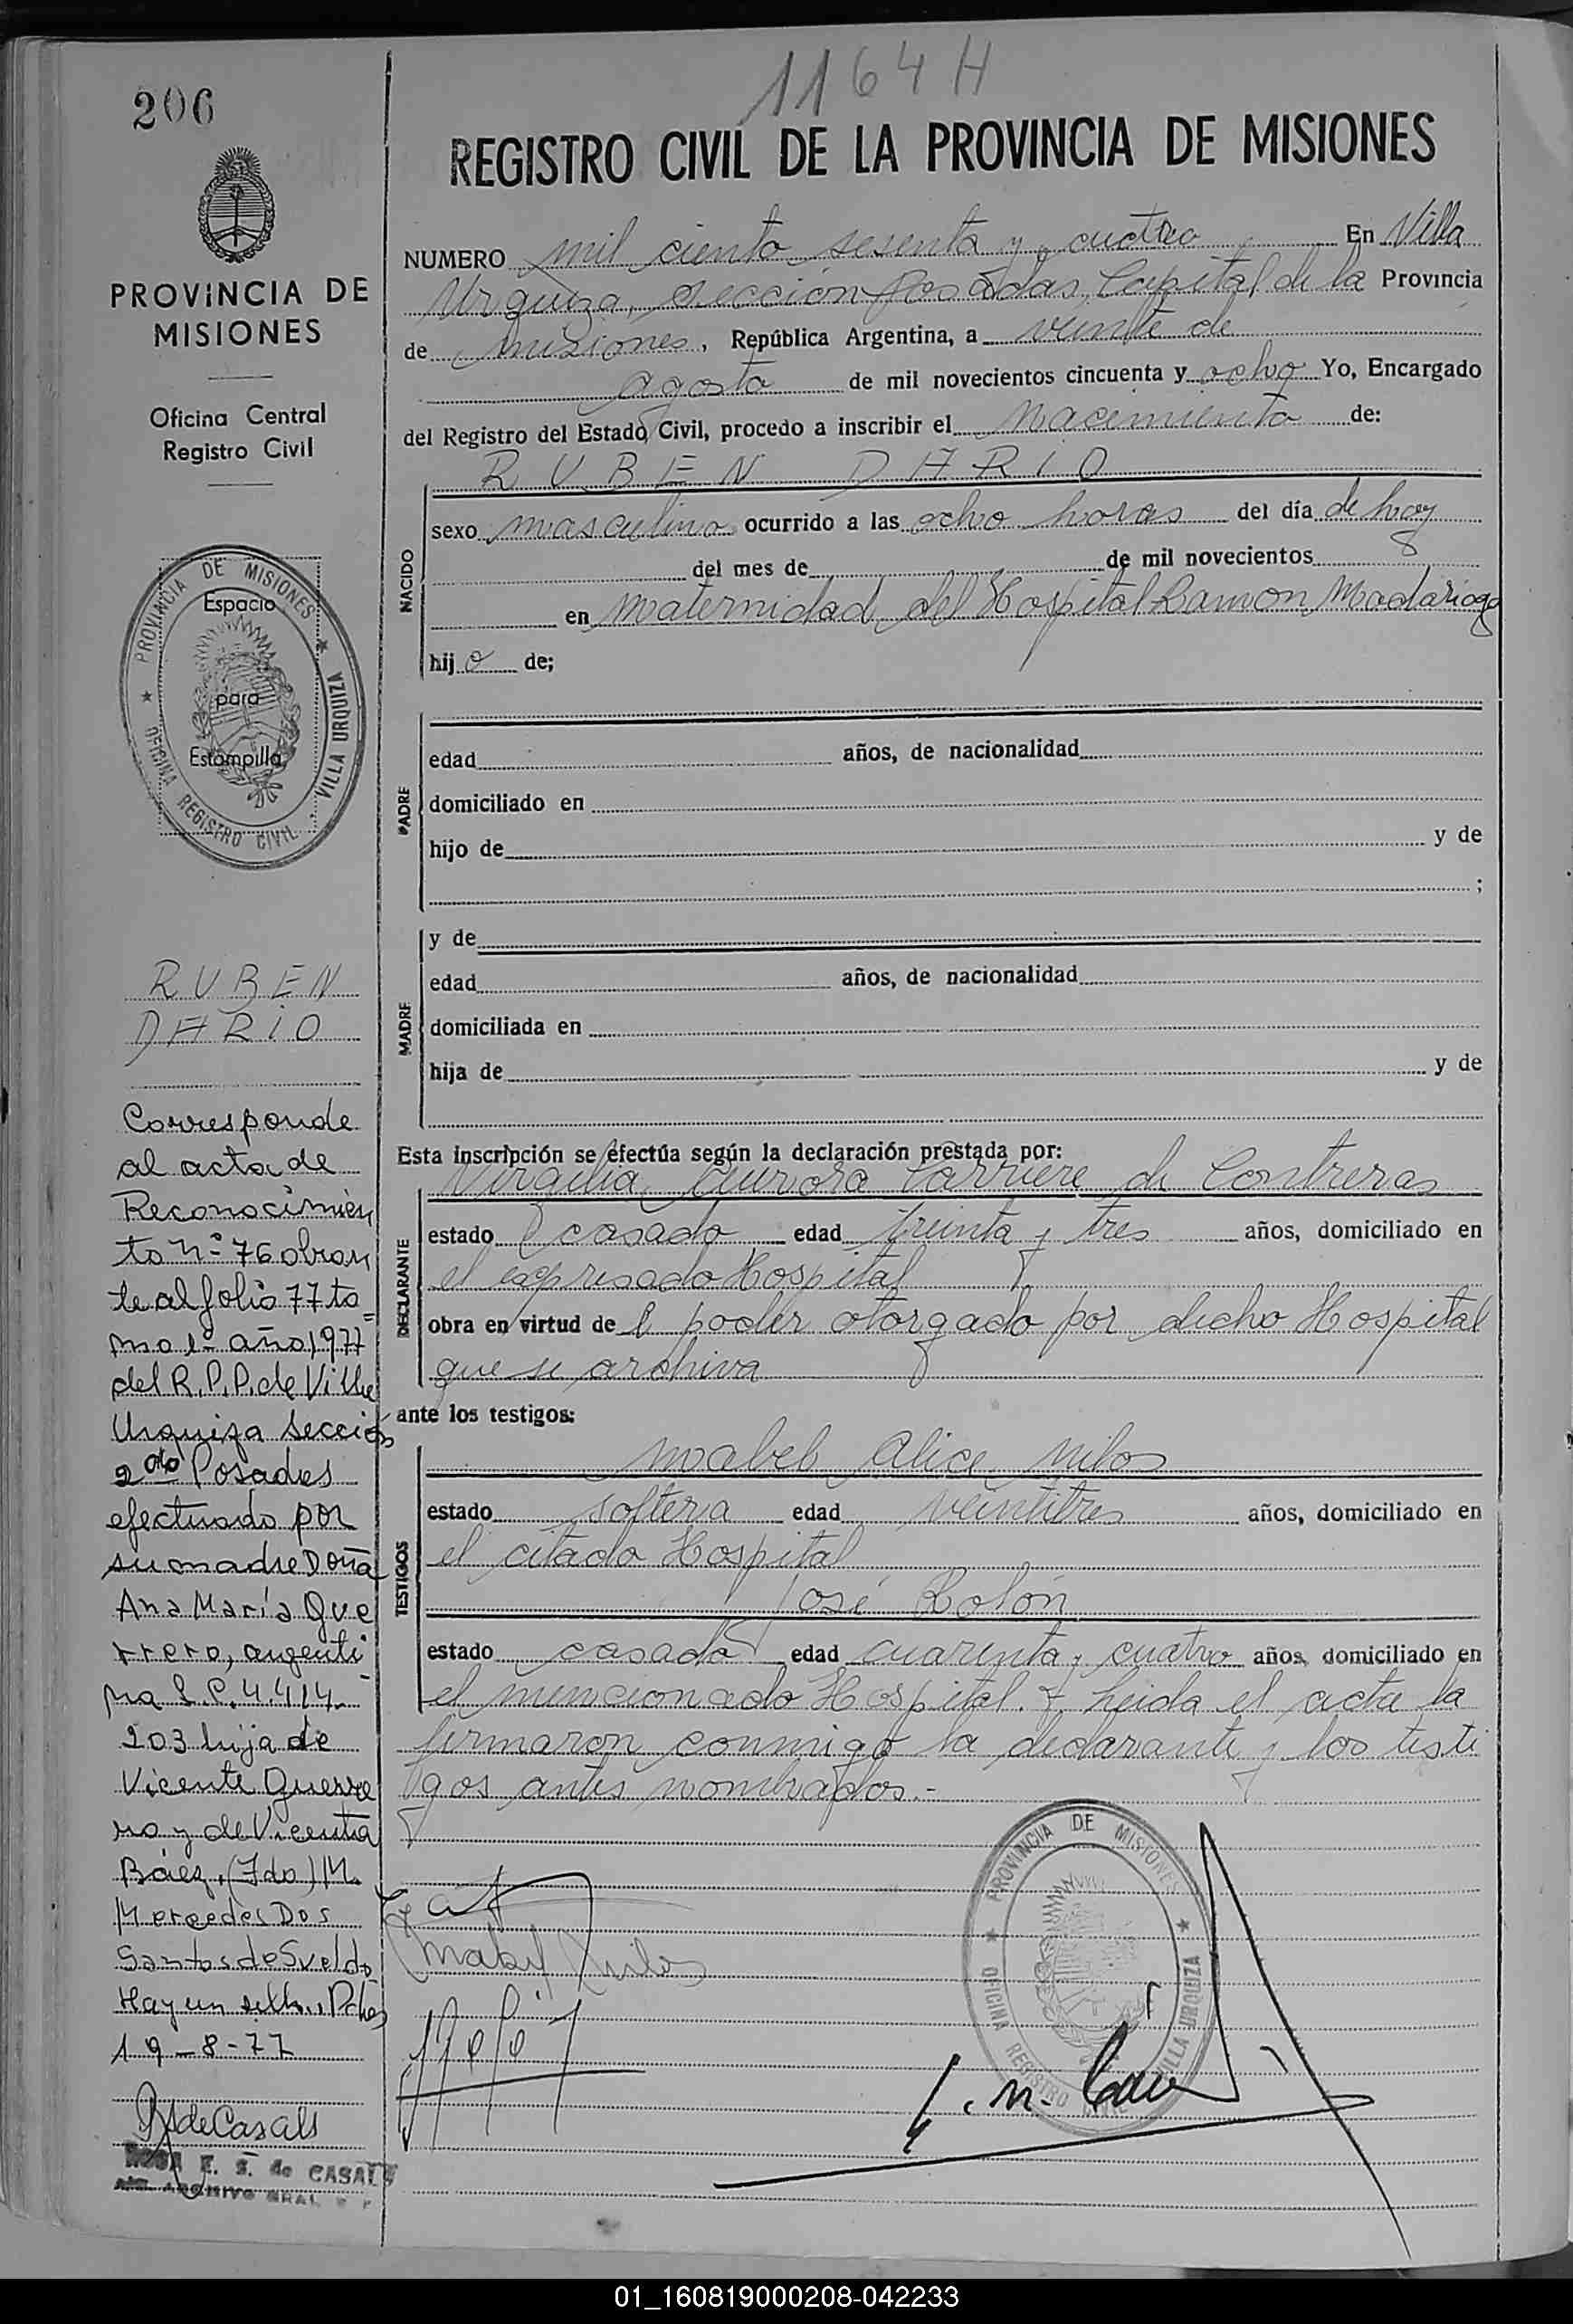 1164 H
206
REGISTRO CIVIL DE LA PROVINCIA DE MISIONES
PROVINCIA DE
MISIONES
Oficina Central
Registro Civil
NUMERO mil ciento sesenta y cuatro En Villa
Urquiza, sección Posadas, Capital de la Provincia
de Misiones, República Argentina, a veinte de
agosto de mil novecientos cincuenta y ocho Yo, Encargado
del Registro del Estado Civil, procedo a inscribir el Nacimiento de:
RUBEN DARIO
NACIDO
sexo masculino ocurrido a las ocho horas del día de hoy
del mes de de mil novecientos
en Maternidad del Hospital Ramon Madariaga
hijo de;
PROVINCIA DE MISIONES ★ VILLA URQUIZA
OFICINA REGISTRO CIVIL ★
Espacio
para
Estampilla
PADRE
edad años, de nacionalidad
domiciliado en
hijo de y de
;
MADRE
y de
edad años, de nacionalidad
domiciliada en
hija de y de
Esta inscripción se efectúa según la declaración prestada por:
DECLARANTE
Virgilia Aurora Carriere de Contreras
estado casada edad treinta y tres años, domiciliado en
el expresado Hospital
obra en virtud del poder otorgado por dicho Hospital
que se archiva
ante los testigos:
TESTIGOS
Mabel Alice Milos
estado soltera edad veintitres años, domiciliado en
el citado Hospital
José Rolón
estado casado edad cuarenta y cuatro años, domiciliado en
el mencionado Hospital. y leida el acta la
firmaron conmigo la declarante y los testi
gos antes nombrados.-
RUBEN
DARIO
Corresponde
al acta de
Reconocimien
to nº 76 obran
te al folio 77 to
mo 1º año 1977
del R.P.P. de Villa
Urquiza Sección
2da Posadas
efectuado por
su madre Doña
Ana María Gue
rrero, argenti
na L.C. 4.414.
203 hija de
Vicente Guerre
ro y de Vicenta
Báez. (Fdo) M.
Mercedes Dos
Santos de Sveldo
Hay un sello. Pdas
19-8-77
RS de Casals
ROSA E. S. de CASALS
ARCHIVO GRAL
Mabel Milos
PROVINCIA DE MISIONES ★ VILLA URQUIZA
OFICINA REGISTRO CIVIL ★
01_160819000208-042233